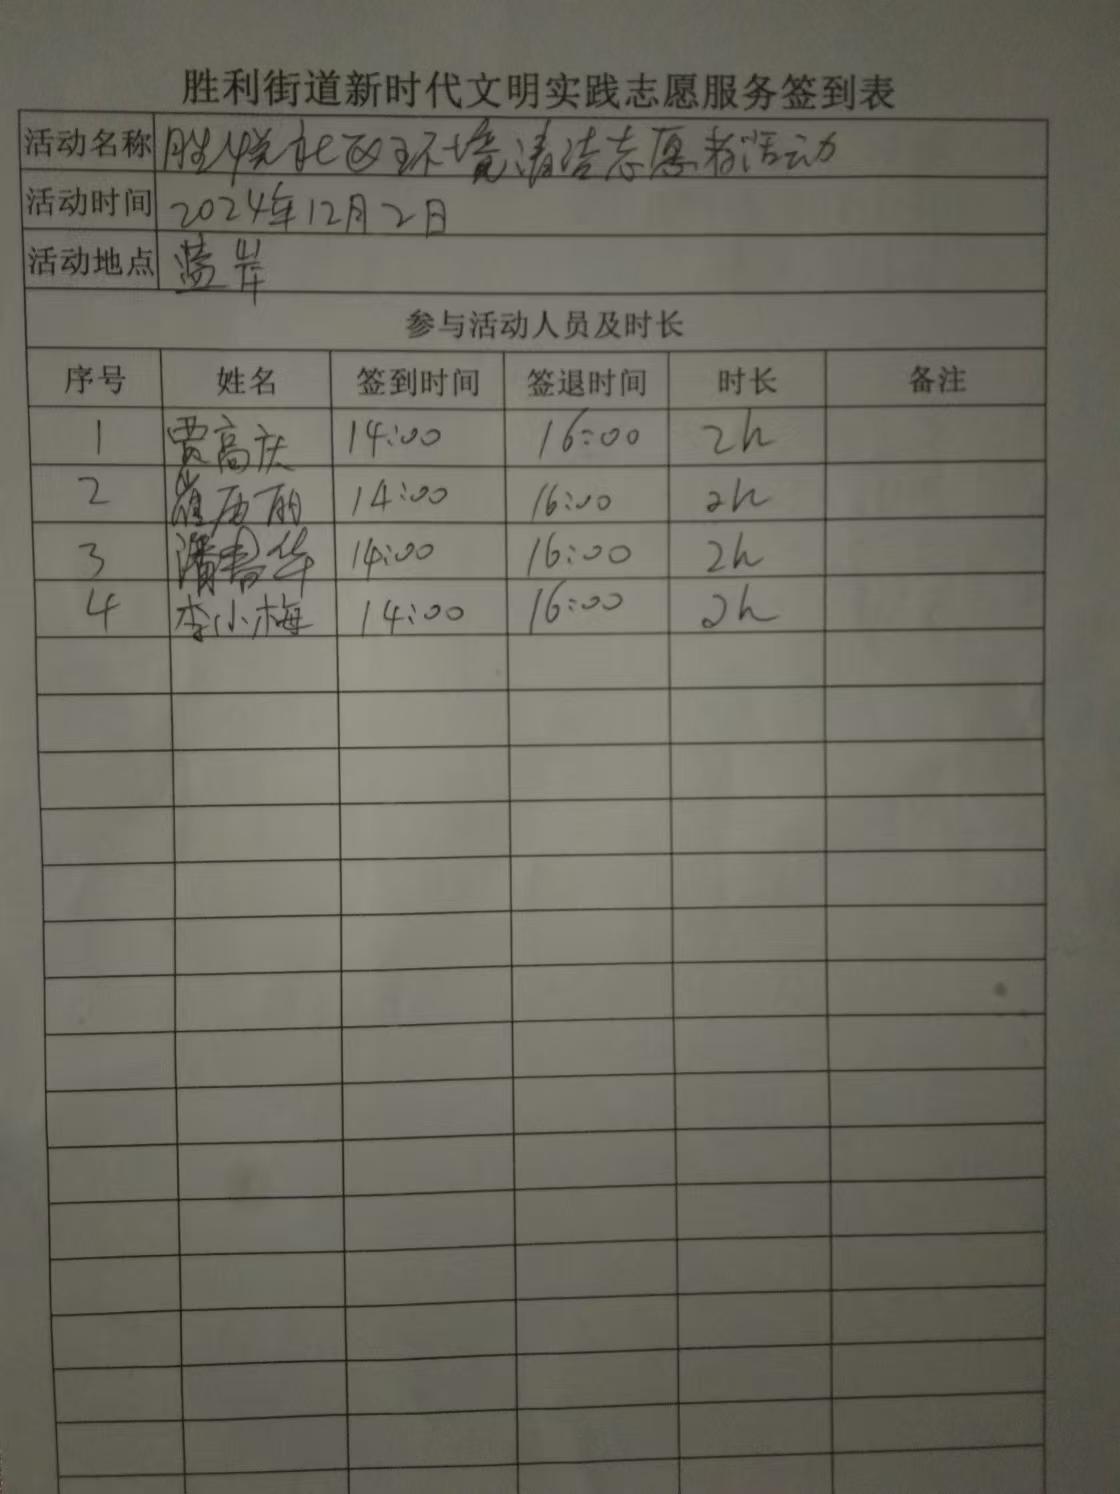 胜利街道新时代文明实践志愿服务签到表
活动名称 胜悦社区环境清洁志愿者活动
活动时间 2024年12月2日
活动地点 蓝岸
参与活动人员及时长
序号 姓名 签到时间 签退时间 时长 备注
1 贾高庆 14:00 16:00 2h
2 崔历丽 14:00 16:00 2h
3 潘书华 14:00 16:00 2h
4 李小梅 14:00 16:00 2h